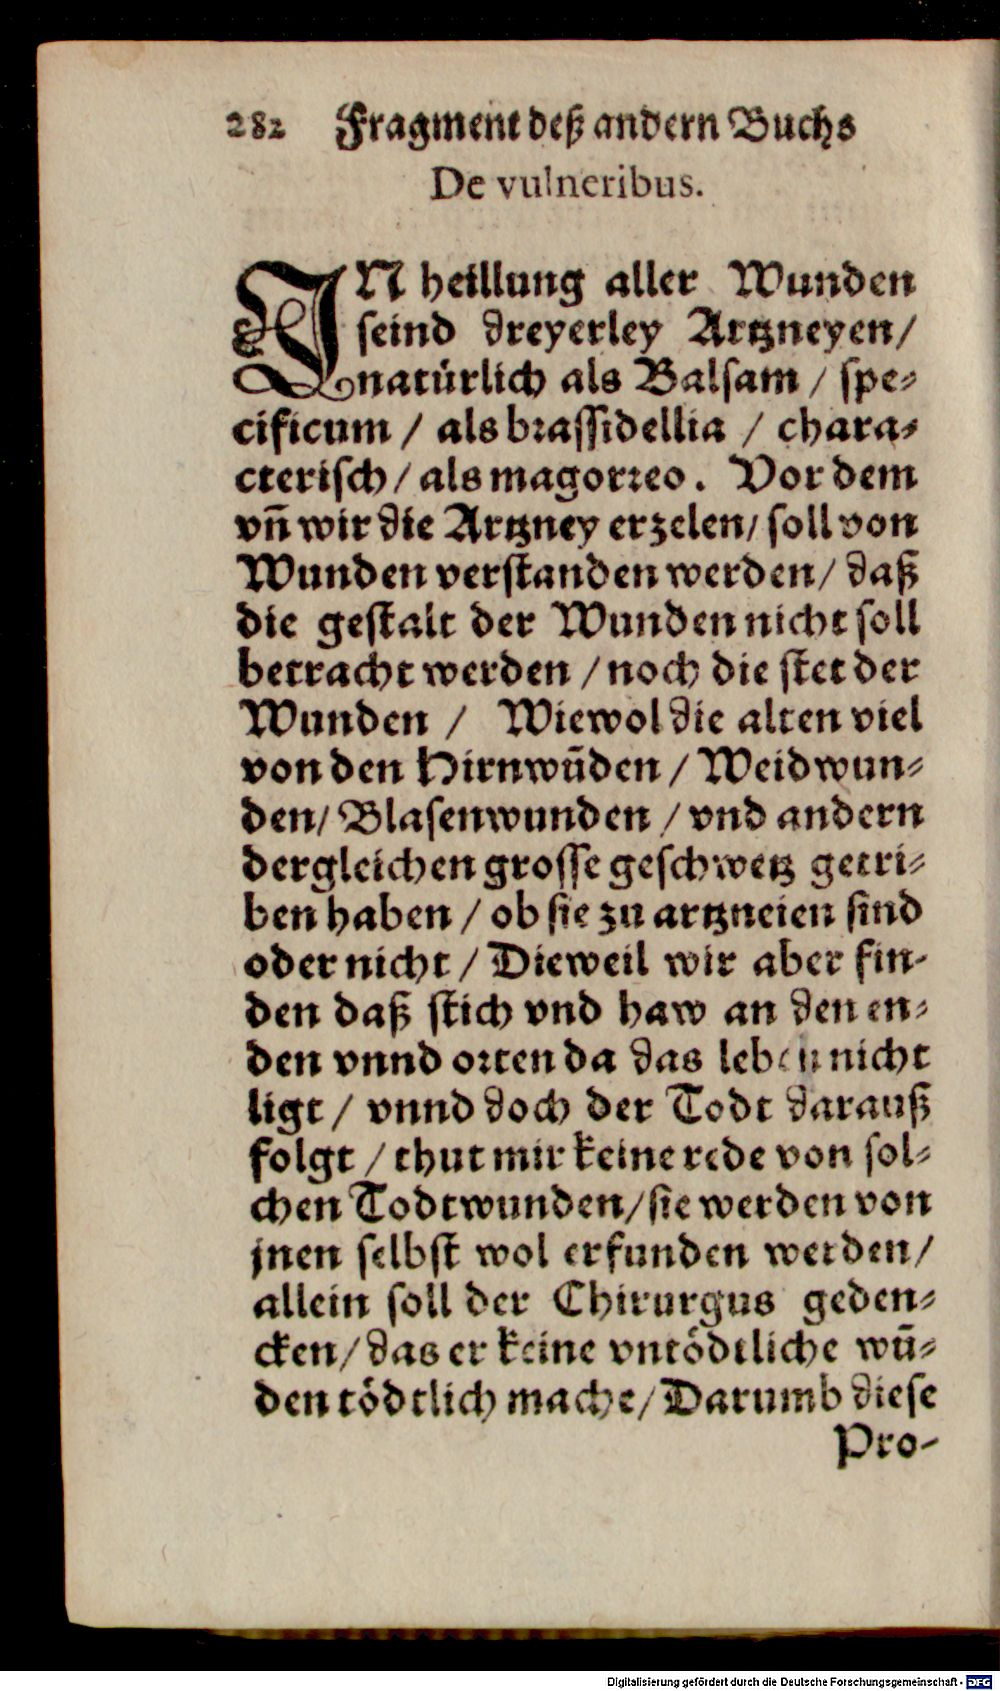 282 Fragment deß andern Buchs
De vulneribus.
IN heillung aller Wunden
seind dreyerley Artzneyen/
natürlich als Balsam / spe-
cificum / als brassidellia / chara-
cterisch / als magorreo. Vor dem
vñ wir die Artzney erzelen/ soll von
Wunden verstanden werden/ daß
die gestalt der Wunden nicht soll
betracht werden / noch die stet der
Wunden / Wiewol die alten viel
von den Hirnwũden / Weidwun-
den/ Blasenwunden / vnd andern
dergleichen grosse geschwetz getri-
ben haben / ob sie zu artzneien sind
oder nicht / Dieweil wir aber fin-
den daß stich vnd haw an den en-
den vnnd orten da das leben nicht
ligt / vnnd doch der Todt darauß
folgt / thut mir keine rede von sol-
chen Todtwunden/ sie werden von
jnen selbst wol erfunden werden/
allein soll der Chirurgus geden-
cken/ das er keine vntödtliche wũ-
den tödtlich mache/ Darumb diese
Pro-
Digitalisierung gefördert durch die Deutsche Forschungsgemeinschaft - DFG